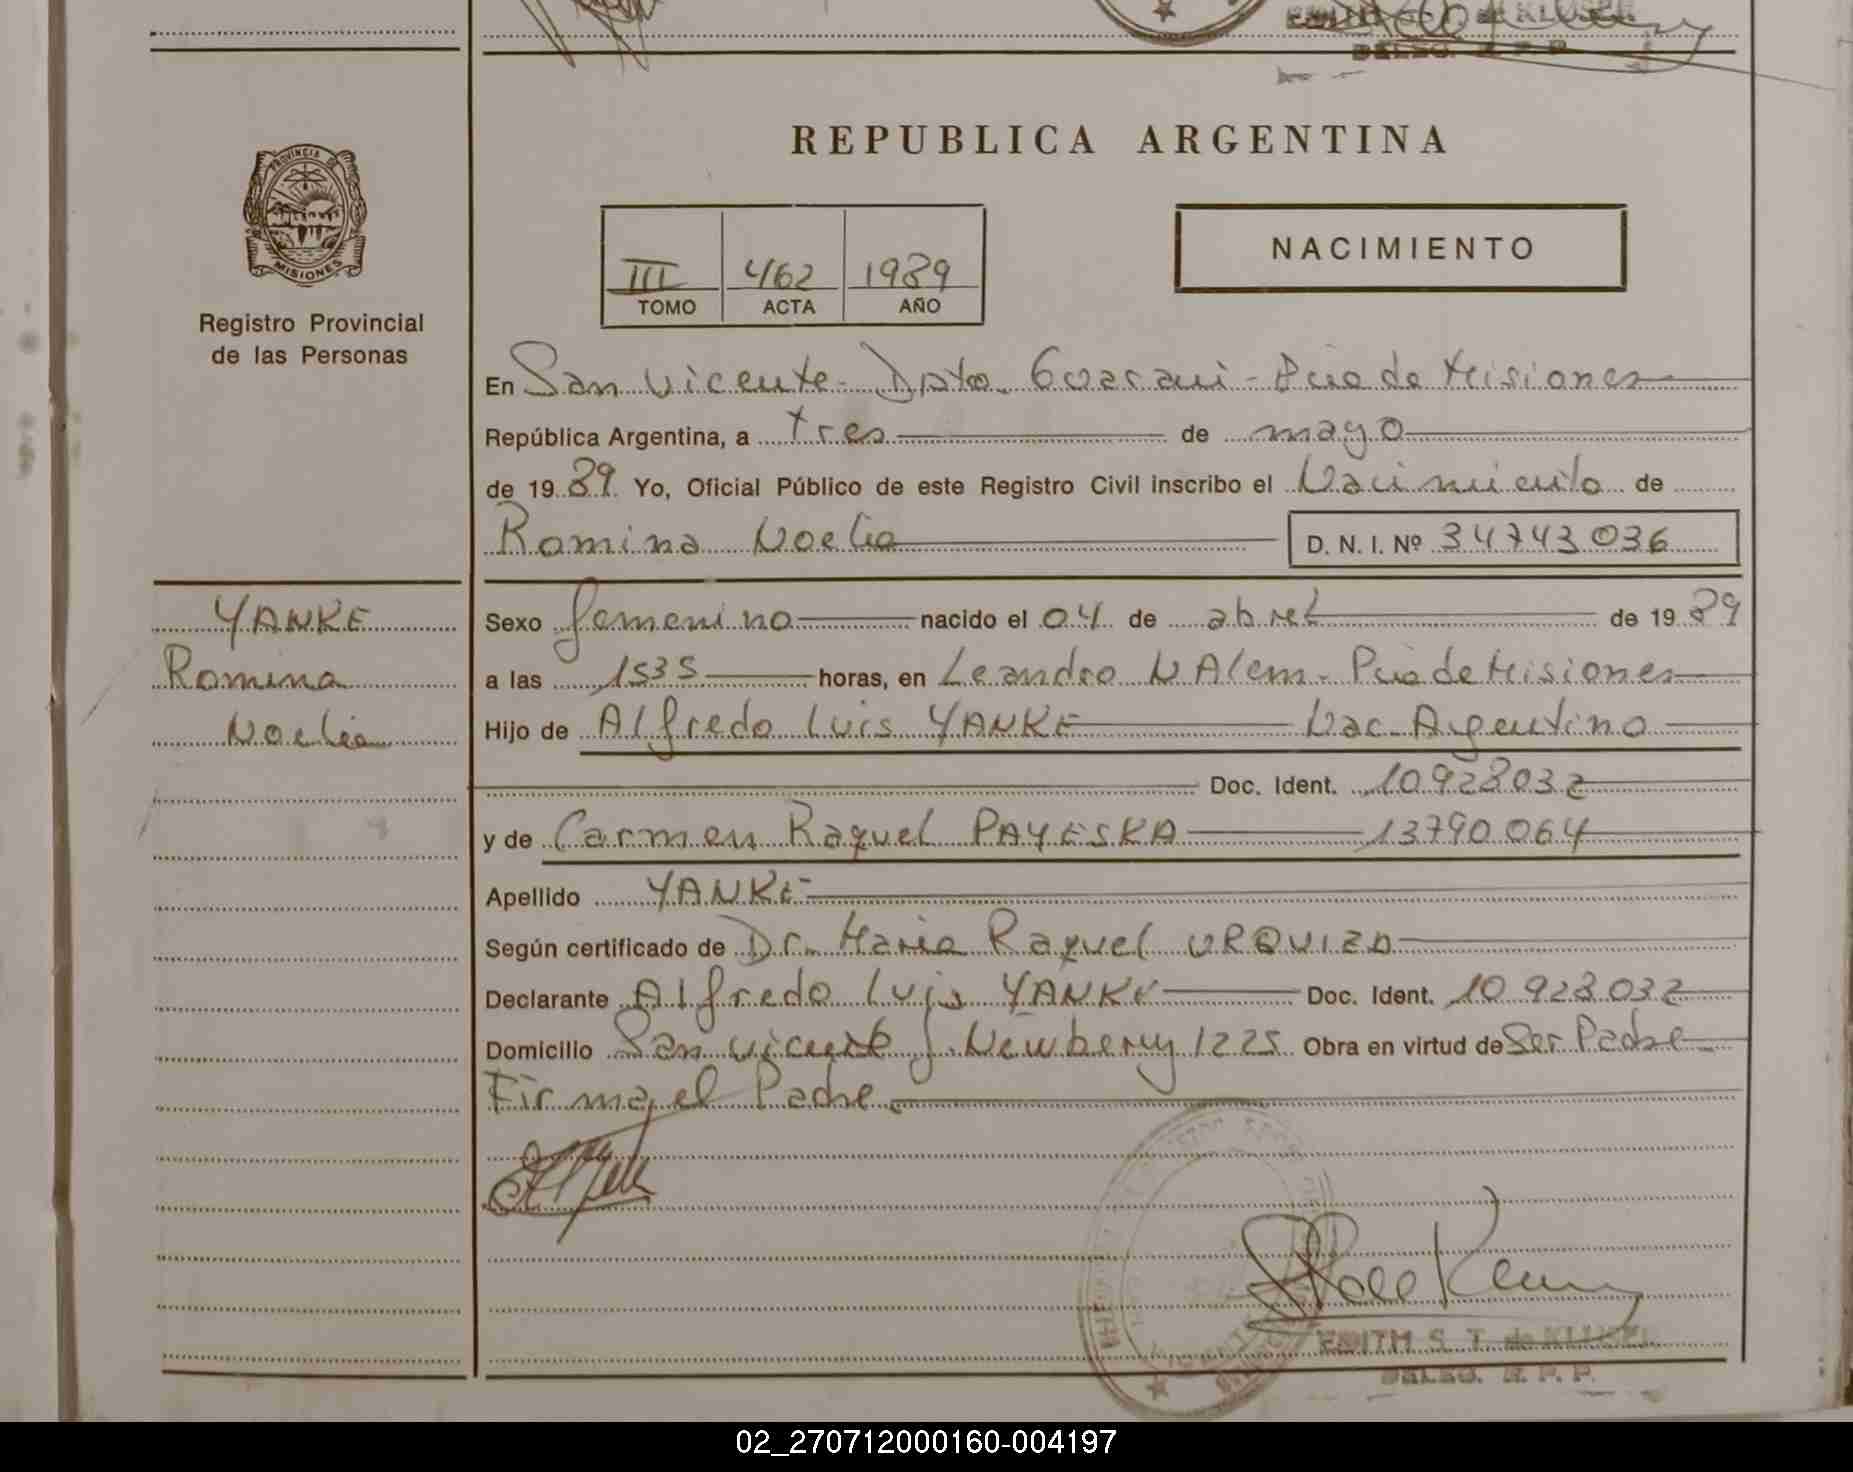 REPUBLICA ARGENTINA
PROVINCIA DE
MISIONES
Registro Provincial
de las Personas
III 462 1989
TOMO ACTA AÑO
NACIMIENTO
En San Vicente - Dpto. Guarani - Pcia de Misiones
República Argentina, a tres de mayo
de 1989. Yo, Oficial Público de este Registro Civil inscribo el Nacimiento de
Romina Noelia D. N. I. Nº 34743036
YANKE
Romina
Noelia
Sexo femenino nacido el 04 de abril de 1989
a las 1535 horas, en Leandro N Alem - Pcia de Misiones
Hijo de Alfredo Luis YANKE Nac. Argentino
Doc. Ident. 10928032
y de Carmen Raquel PAYESKA 13790.064
Apellido YANKE
Según certificado de Dr. Maria Raquel URQUIZO
Declarante Alfredo Luis YANKE Doc. Ident. 10.928.032
Domicilio San Vicente J. Newbery 1225 Obra en virtud de Ser Padre
Firma, el Padre.
EDITH S. T. de KLUSEL
DELEG. R. P. P.
02_270712000160-004197